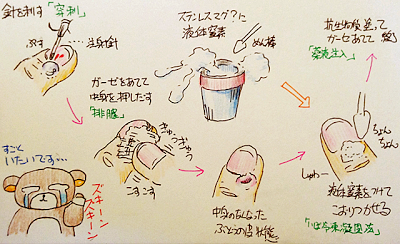 針を刺す
「穿刺」
ぷす
注射針
ガーゼをあてて
中身を押しだす
「排膿」
ぎゅうぎゅう
こすこす
すごく
いたいです…
ズキーン
ズキーン
ステンレスマグ?に
液体窒素
めん棒
中身のなくなった
ぶどうの皮状態
抗生物質塗って
ガーゼあてて
「薬液注入」
ちょん
ちょん
しゅー
液体窒素をつけて
こおりつかせる